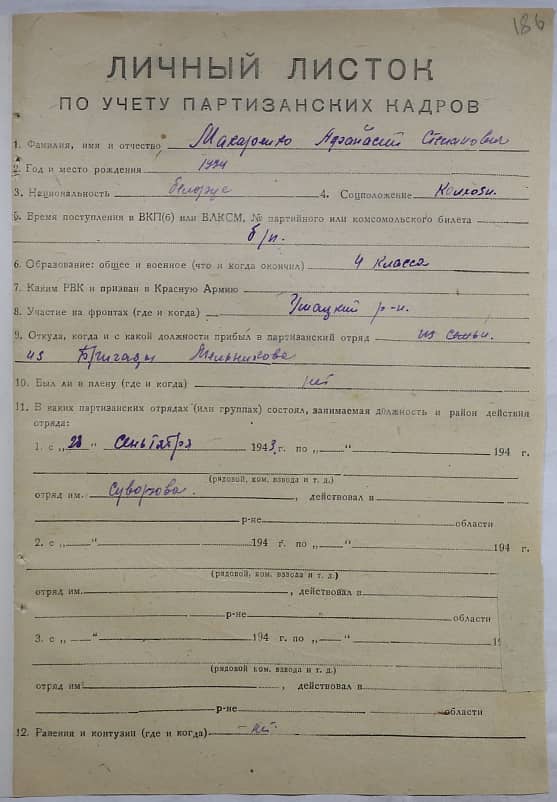 186
ЛИЧНЫЙ ЛИСТОК
ПО УЧЕТУ ПАРТИЗАНСКИХ КАДРОВ
1. Фамилия, имя и отчество Макаренко Афанасий Степанович
2. Год и место рождения 1924
3. Национальность белорус 4. Соцположение Колхозн.
5. Время поступления в ВКП(б) или ВЛКСМ, № партийного или комсомольского билета
б/п.
6. Образование: общее и военное (что и когда окончил) 4 класса
7. Каким РВК и призван в Красную Армию
8. Участие на фронтах (где и когда) Ушацкий р-н.
9. Откуда, когда и с какой должности прибыл в партизанский отряд из семьи.
из Бригады Мельникова
10. Был ли в плену (где и когда) нет
11. В каких партизанских отрядах (или группах) состоял, занимаемая должность и район действия
отряда:
1. с „28" Сентября 1943 г. по „ " 194 г.
(рядовой, ком. взвода и т. д.)
отряд им. Суворова. , действовал в
р-не области
2. с „ " 194 г. по „ " 194 г.
(рядовой, ком. взвода и т. д.)
отряд им. , действовал в
р-не области
3. с „ " 194 г. по „ " 1
(рядовой, ком. взвода и т. д.)
отряд им. , действовал в
р-не области
12. Ранения и контузии (где и когда) -нет